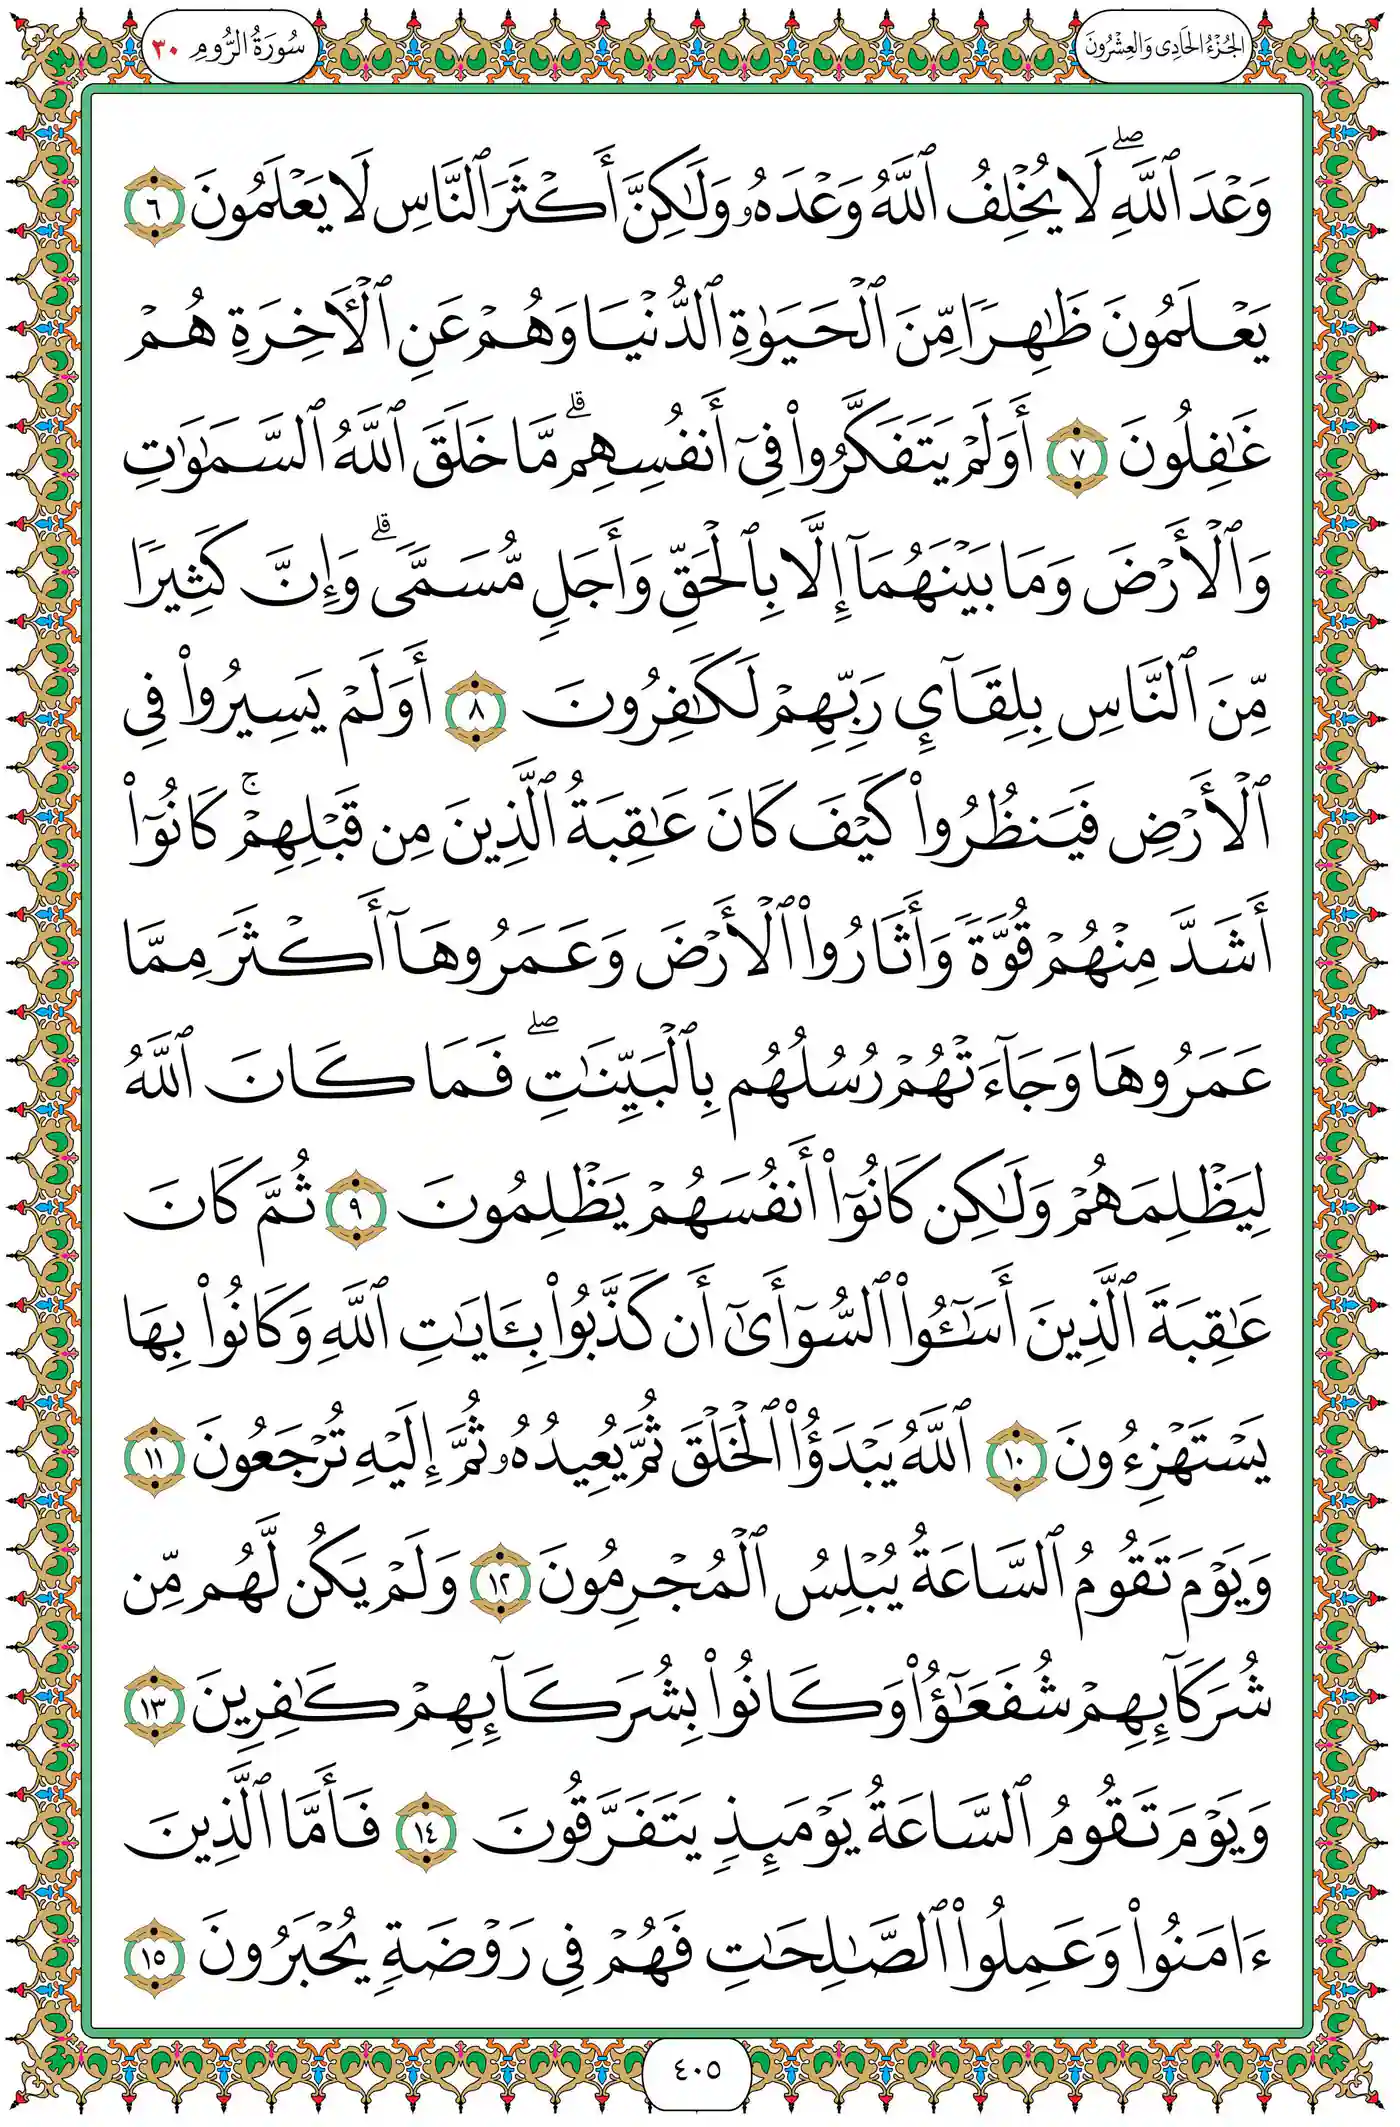 الجُزْءُ الحَادِى وَالعِشْرُونَ
سُورَةُ الرُّومِ ٣٠
وَعْدَ ٱللَّهِۖ لَا يُخْلِفُ ٱللَّهُ وَعْدَهُۥ وَلَٰكِنَّ أَكْثَرَ ٱلنَّاسِ لَا يَعْلَمُونَ ٦
يَعْلَمُونَ ظَٰهِرًا مِّنَ ٱلْحَيَوٰةِ ٱلدُّنْيَا وَهُمْ عَنِ ٱلْأَخِرَةِ هُمْ
غَٰفِلُونَ ٧ أَوَلَمْ يَتَفَكَّرُوا۟ فِىٓ أَنفُسِهِمۗ مَّا خَلَقَ ٱللَّهُ ٱلسَّمَٰوَٰتِ
وَٱلْأَرْضَ وَمَا بَيْنَهُمَآ إِلَّا بِٱلْحَقِّ وَأَجَلٍ مُّسَمًّىۗ وَإِنَّ كَثِيرًا
مِّنَ ٱلنَّاسِ بِلِقَآئِ رَبِّهِمْ لَكَٰفِرُونَ ٨ أَوَلَمْ يَسِيرُوا۟ فِى
ٱلْأَرْضِ فَيَنظُرُوا۟ كَيْفَ كَانَ عَٰقِبَةُ ٱلَّذِينَ مِن قَبْلِهِمْۚ كَانُوٓا۟
أَشَدَّ مِنْهُمْ قُوَّةً وَأَثَارُوا۟ ٱلْأَرْضَ وَعَمَرُوهَآ أَكْثَرَ مِمَّا
عَمَرُوهَا وَجَآءَتْهُمْ رُسُلُهُم بِٱلْبَيِّنَٰتِۖ فَمَا كَانَ ٱللَّهُ
لِيَظْلِمَهُمْ وَلَٰكِن كَانُوٓا۟ أَنفُسَهُمْ يَظْلِمُونَ ٩ ثُمَّ كَانَ
عَٰقِبَةَ ٱلَّذِينَ أَسَٰٓـُٔوا۟ ٱلسُّوٓأَىٰٓ أَن كَذَّبُوا۟ بِـَٔايَٰتِ ٱللَّهِ وَكَانُوا۟ بِهَا
يَسْتَهْزِءُونَ ١٠ ٱللَّهُ يَبْدَؤُا۟ ٱلْخَلْقَ ثُمَّ يُعِيدُهُۥ ثُمَّ إِلَيْهِ تُرْجَعُونَ ١١
وَيَوْمَ تَقُومُ ٱلسَّاعَةُ يُبْلِسُ ٱلْمُجْرِمُونَ ١٢ وَلَمْ يَكُن لَّهُم مِّن
شُرَكَآئِهِمْ شُفَعَٰٓؤُا۟ وَكَانُوا۟ بِشُرَكَآئِهِمْ كَٰفِرِينَ ١٣
وَيَوْمَ تَقُومُ ٱلسَّاعَةُ يَوْمَئِذٍ يَتَفَرَّقُونَ ١٤ فَأَمَّا ٱلَّذِينَ
ءَامَنُوا۟ وَعَمِلُوا۟ ٱلصَّٰلِحَٰتِ فَهُمْ فِى رَوْضَةٍ يُحْبَرُونَ ١٥
٤٠٥